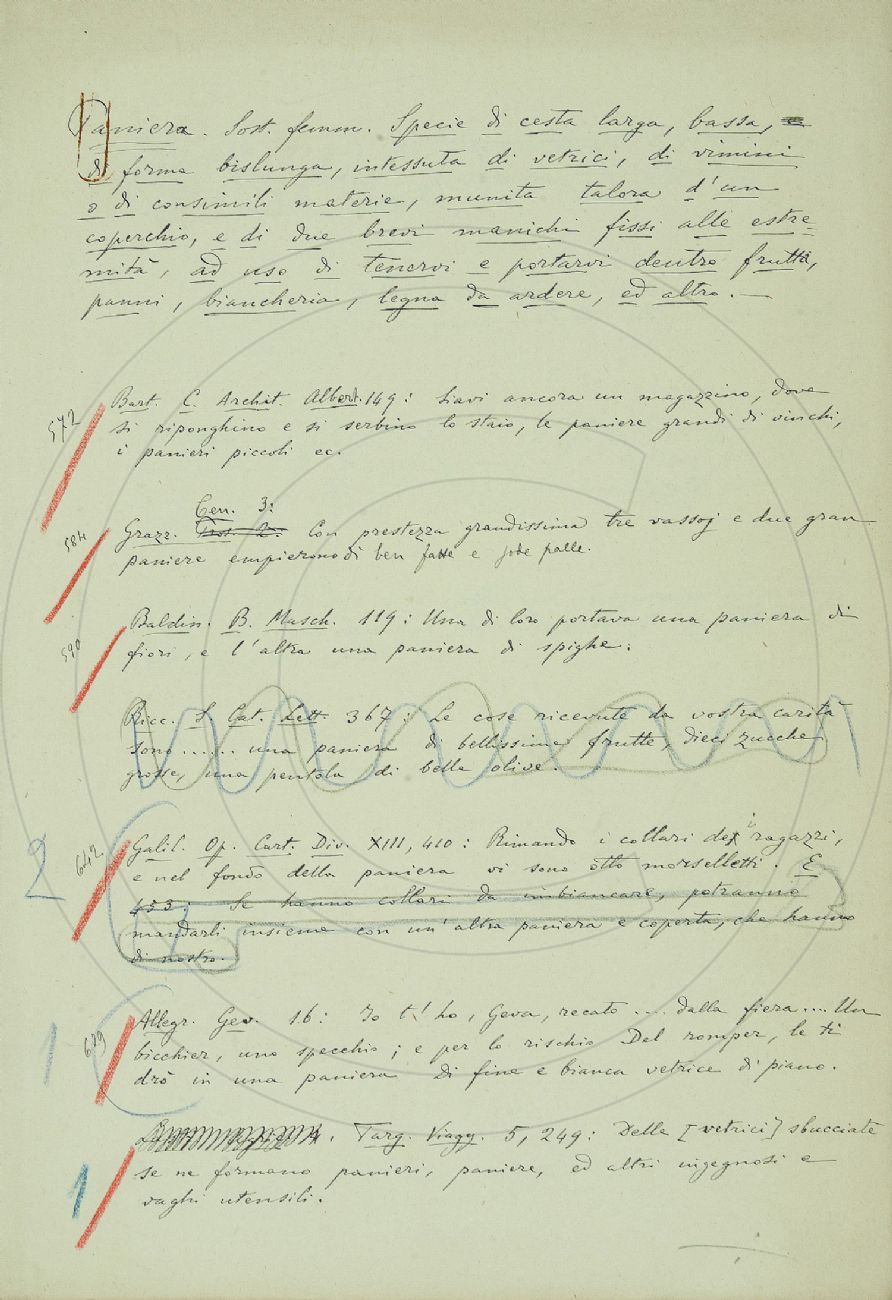 Paniera. Sost. femm. Specie di cesta larga, bassa, e
di forma bislunga, intessuta di vetrici, di vimini
o di consimili materie, munita talora d'un
coperchio, e di due brevi manichi fissi alle estre=
mità, ad uso di tenervi e portarvi dentro frutta,
panni, biancheria, legna da ardere, ed altro. —
572
Bart. C. Archit. Albert. 149: Siavi ancora un magazzino, dove
si riponghino e si serbino lo staio, le paniere grandi di vinchi,
i panieri piccoli ec.
Gen. 3:
584
Grazz. Con prestezza grandissima tre vassoj e due gran
paniere empierono di ben fatte e sode palle.
590
Baldin. B. Masch. 119: Una di loro portava una paniera di
fiori, e l'altra una paniera di spighe.
Ricc. S. Cat. Lett. 367: Le cose ricevute da vostra carità
sono...... una paniera di bellissime frutte, dieci zucche
grosse, una pentola di belle olive.
2
642
Galil. Op. Cart. Div. XIII, 410: Rimando i collari de' ragazzi,
e nel fondo della paniera vi sono otto morselletti. E
453: Se hanno collari da imbiancare, potranno
mandarli insieme con un'altra paniera e coperta, che hanno
di nostro.
1
619
Allegr. Gev. 16: Io t'ho, Geva, recato .... dalla fiera .... Un
bicchier, uno specchio; e per lo rischio Del romper, le ti
drò in una paniera Di fine e bianca vetrice di piano.
1
Targ. Viagg. 5, 249: Delle [vetrici] sbucciate
se ne formano panieri, paniere, ed altri ingegnosi e
vaghi utensili.